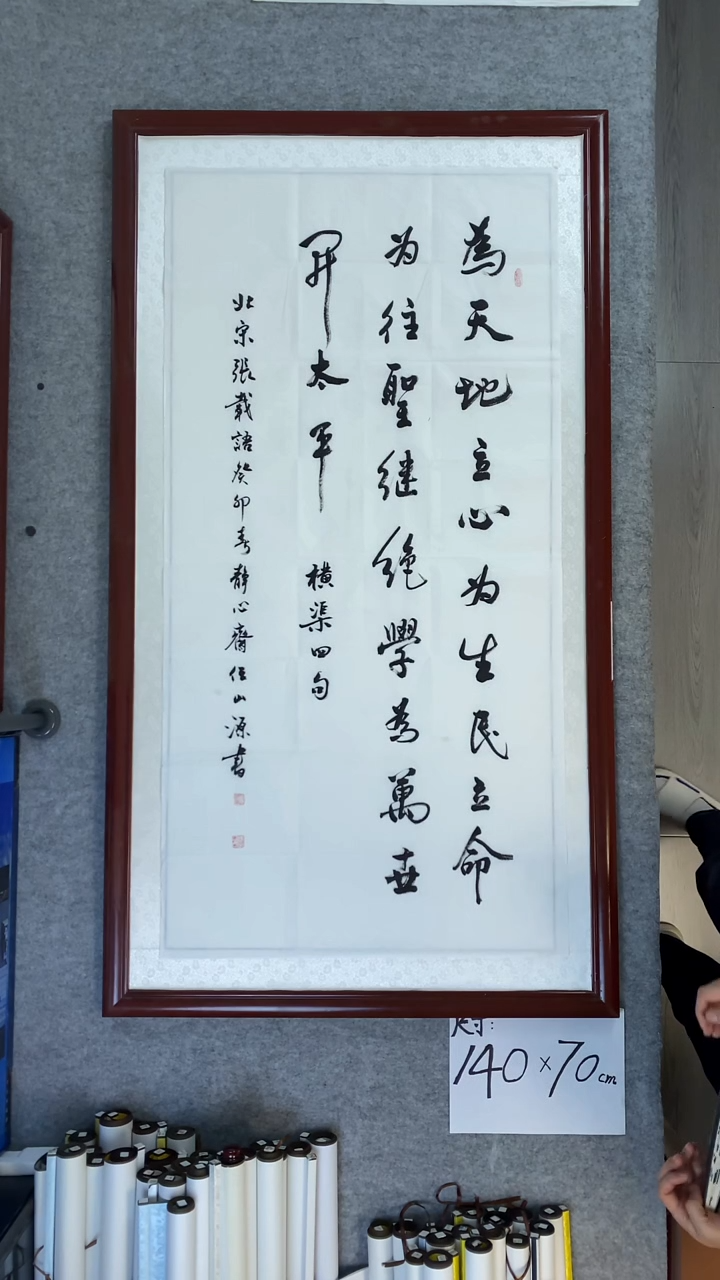 為天地立心为生民立命
为往聖继绝學为萬世
开太平 横渠四句
北宋張載語癸卯春静心齋任山源書
尺寸:
140×70cm